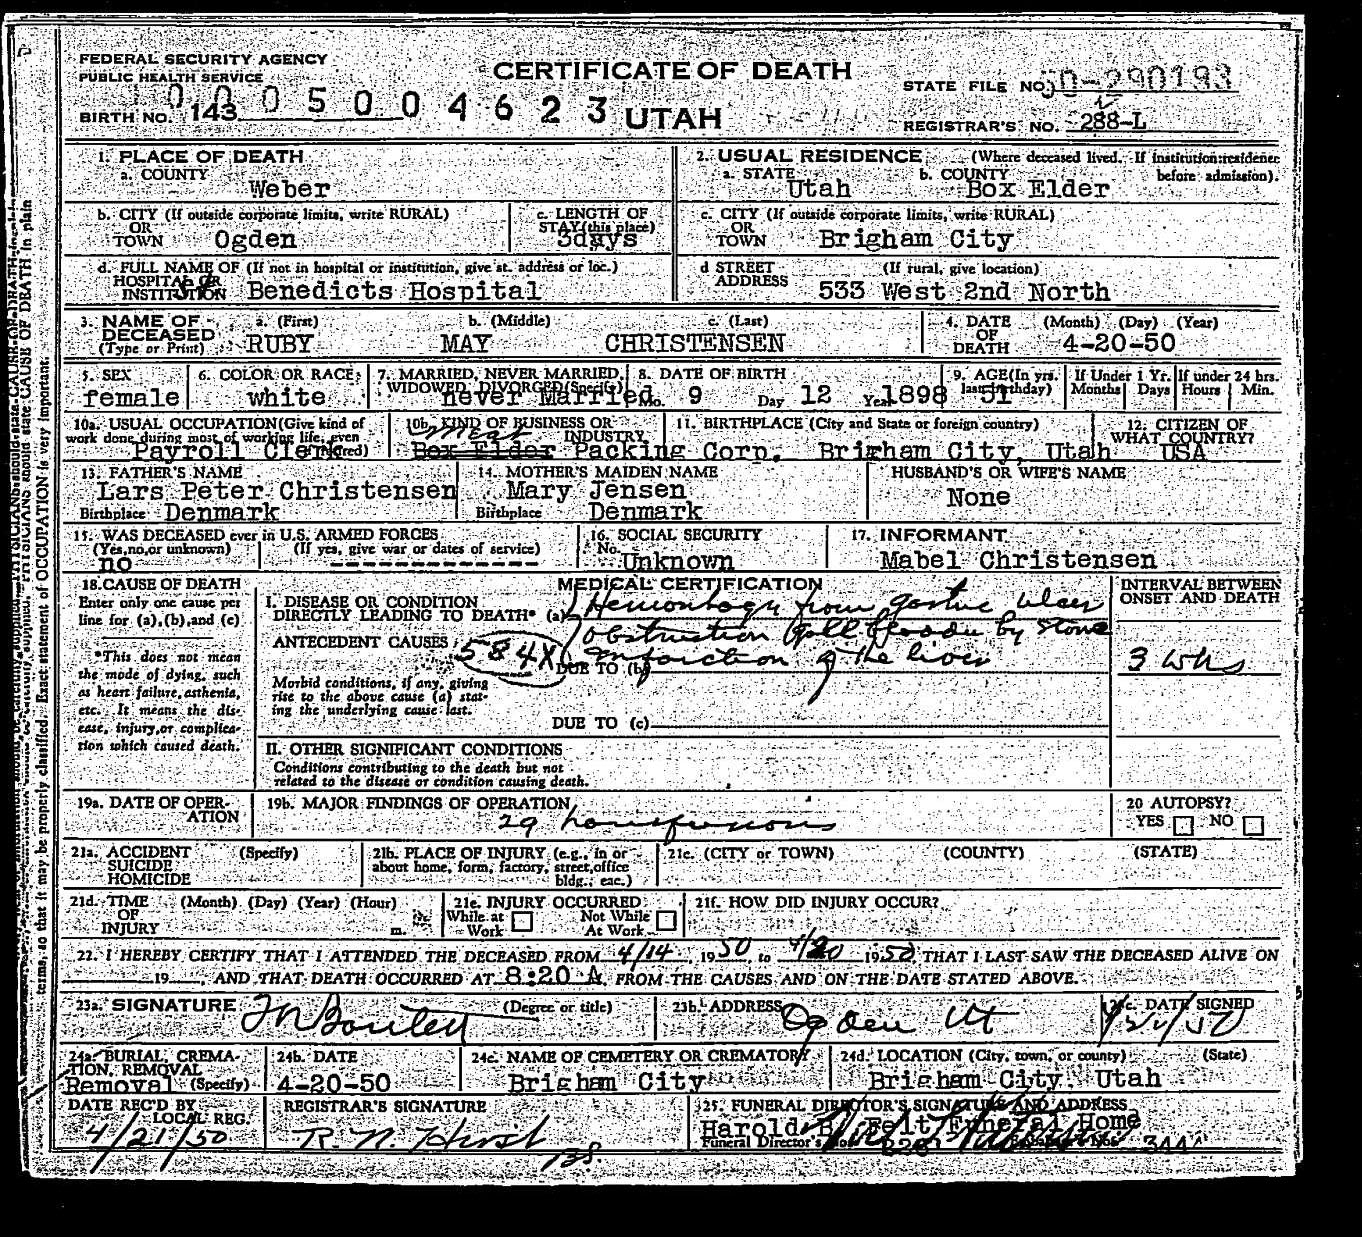 FEDERAL SECURITY AGENCY
PUBLIC HEALTH SERVICE
BIRTH NO. 143
0 0 0 5 0 0 4 6 2 3
CERTIFICATE OF DEATH
UTAH
STATE FILE NO. 50-290193
REGISTRAR'S NO. 288-L
1. PLACE OF DEATH
a. COUNTY
Weber
2. USUAL RESIDENCE (Where deceased lived. If institution: residence before admission).
a. STATE Utah b. COUNTY Box Elder
b. CITY (If outside corporate limits, write RURAL)
OR
TOWN Ogden
c. LENGTH OF
STAY (this place)
3days
c. CITY (If outside corporate limits, write RURAL)
OR
TOWN Brigham City
d. FULL NAME OF (If not in hospital or institution, give st. address or loc.)
HOSPITAL OR
INSTITUTION St Benedicts Hospital
d STREET (If rural, give location)
ADDRESS 533 West 2nd North
3. NAME OF DECEASED
(Type or Print)
a. (First) b. (Middle) c. (Last)
RUBY MAY CHRISTENSEN
4. DATE OF DEATH (Month) (Day) (Year)
4-20-50
5. SEX
female
6. COLOR OR RACE
white
7. MARRIED, NEVER MARRIED,
WIDOWED, DIVORCED (Specify)
never Married
8. DATE OF BIRTH
Mo. 9 Day 12 Year 1898
9. AGE (In yrs. last birthday)
51
If Under 1 Yr.
Months Days
If under 24 hrs.
Hours Min.
10a. USUAL OCCUPATION (Give kind of
work done during most of working life, even
if retired)
Payroll Clerk
10b. KIND OF BUSINESS OR
INDUSTRY
Meat
Box Elder Packing Corp.
11. BIRTHPLACE (City and State or foreign country)
Brigham City, Utah
12. CITIZEN OF
WHAT COUNTRY?
USA
13. FATHER'S NAME
Lars Peter Christensen
Birthplace Denmark
14. MOTHER'S MAIDEN NAME
Mary Jensen
Birthplace Denmark
HUSBAND'S OR WIFE'S NAME
None
15. WAS DECEASED ever in U.S. ARMED FORCES
(Yes, no, or unknown) (If yes, give war or dates of service)
no -------------
16. SOCIAL SECURITY
No. Unknown
17. INFORMANT
Mabel Christensen
18. CAUSE OF DEATH
Enter only one cause per
line for (a), (b), and (c)
*This does not mean
the mode of dying, such
as heart failure, asthenia,
etc. It means the dis-
ease, injury, or complica-
tion which caused death.
MEDICAL CERTIFICATION
I. DISEASE OR CONDITION
DIRECTLY LEADING TO DEATH* (a) Hemorrhage from gastric ulcer
obstruction Gall bladder by stone
ANTECEDENT CAUSES 584X
DUE TO (b) Infarction of the liver
Morbid conditions, if any, giving
rise to the above cause (a) stat-
ing the underlying cause last.
DUE TO (c)
INTERVAL BETWEEN
ONSET AND DEATH
3 wks
II. OTHER SIGNIFICANT CONDITIONS
Conditions contributing to the death but not
related to the disease or condition causing death.
19a. DATE OF OPER-
ATION
19b. MAJOR FINDINGS OF OPERATION
29
20 AUTOPSY?
YES NO
21a. ACCIDENT (Specify)
SUICIDE
HOMICIDE
21b. PLACE OF INJURY (e.g., in or
about home, form, factory, street, office
bldg., eac.)
21c. (CITY or TOWN) (COUNTY) (STATE)
21d. TIME (Month) (Day) (Year) (Hour)
OF
INJURY m.
21e. INJURY OCCURRED
While at Work
Not While At Work
21f. HOW DID INJURY OCCUR?
22. I HEREBY CERTIFY THAT I ATTENDED THE DECEASED FROM 4/14, 1950, to 4/20 1950, THAT I LAST SAW THE DECEASED ALIVE ON
19, AND THAT DEATH OCCURRED AT 8:20 A, FROM THE CAUSES AND ON THE DATE STATED ABOVE.
23a. SIGNATURE (Degree or title)
23b. ADDRESS
Ogden Ut
23c. DATE SIGNED
24a. BURIAL, CREMA-
TION, REMOVAL
Removal (Specify)
24b. DATE
4-20-50
24c. NAME OF CEMETERY OR CREMATORY
Brigham City
24d. LOCATION (City, town, or county) (State)
Brigham City, Utah
DATE REC'D BY
LOCAL REG.
4/21/50
REGISTRAR'S SIGNATURE
25. FUNERAL DIRECTOR'S SIGNATURE AND ADDRESS
Harold B. Felt Funeral Home
Funeral Director's
344